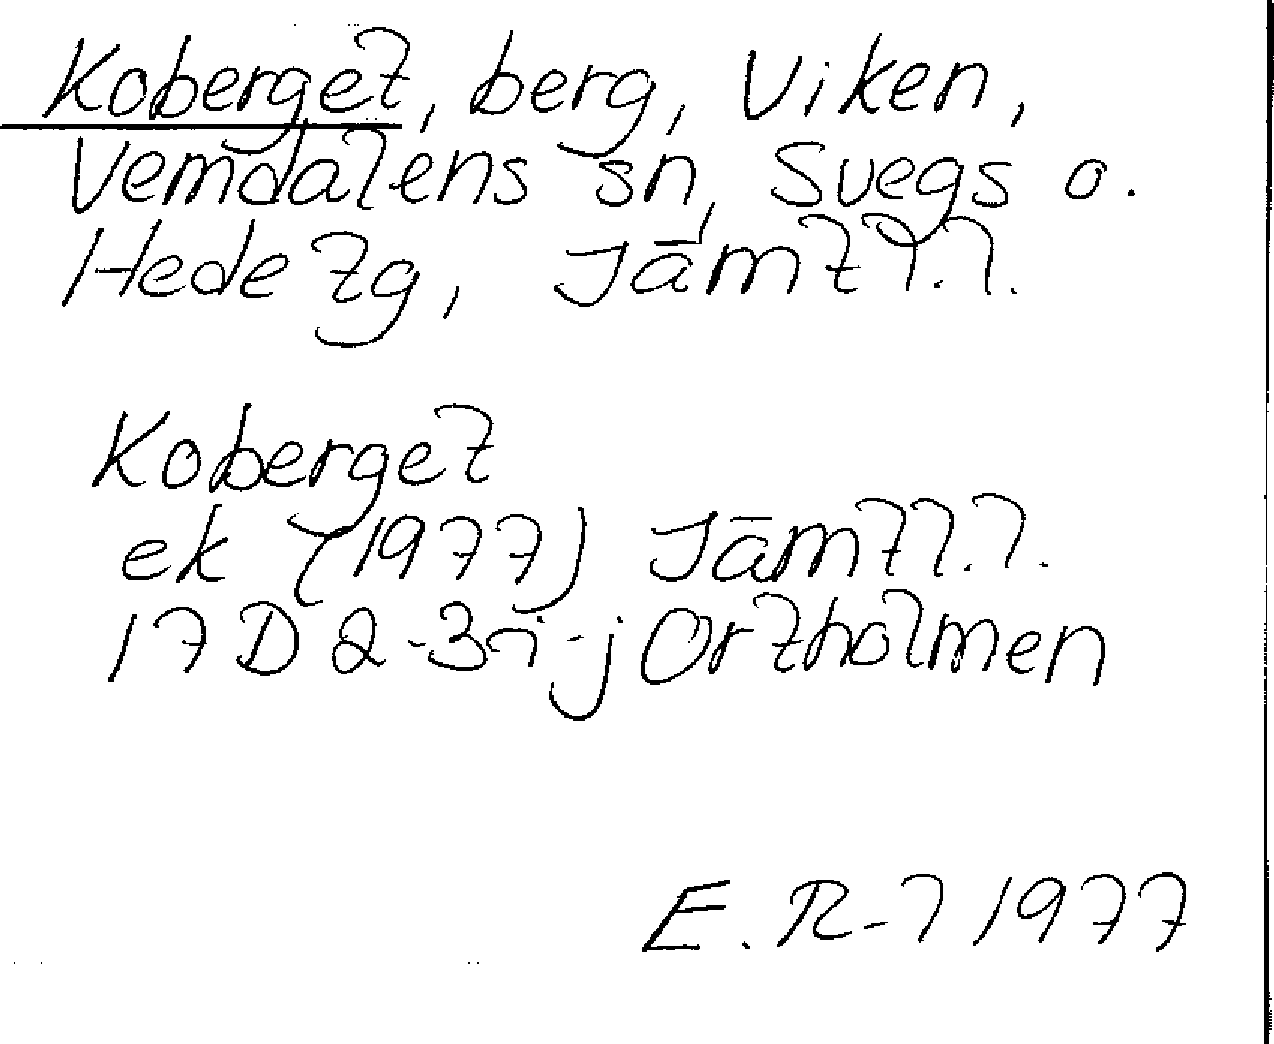 Koberget, berg, Viken,
Vemdalens sn, Svegs o.
Hede tg, Jämtl.l.
Koberget
ek (1977) Jämtl.l.
17D 2-3 i-j Ortholmen
E.R-l 1977